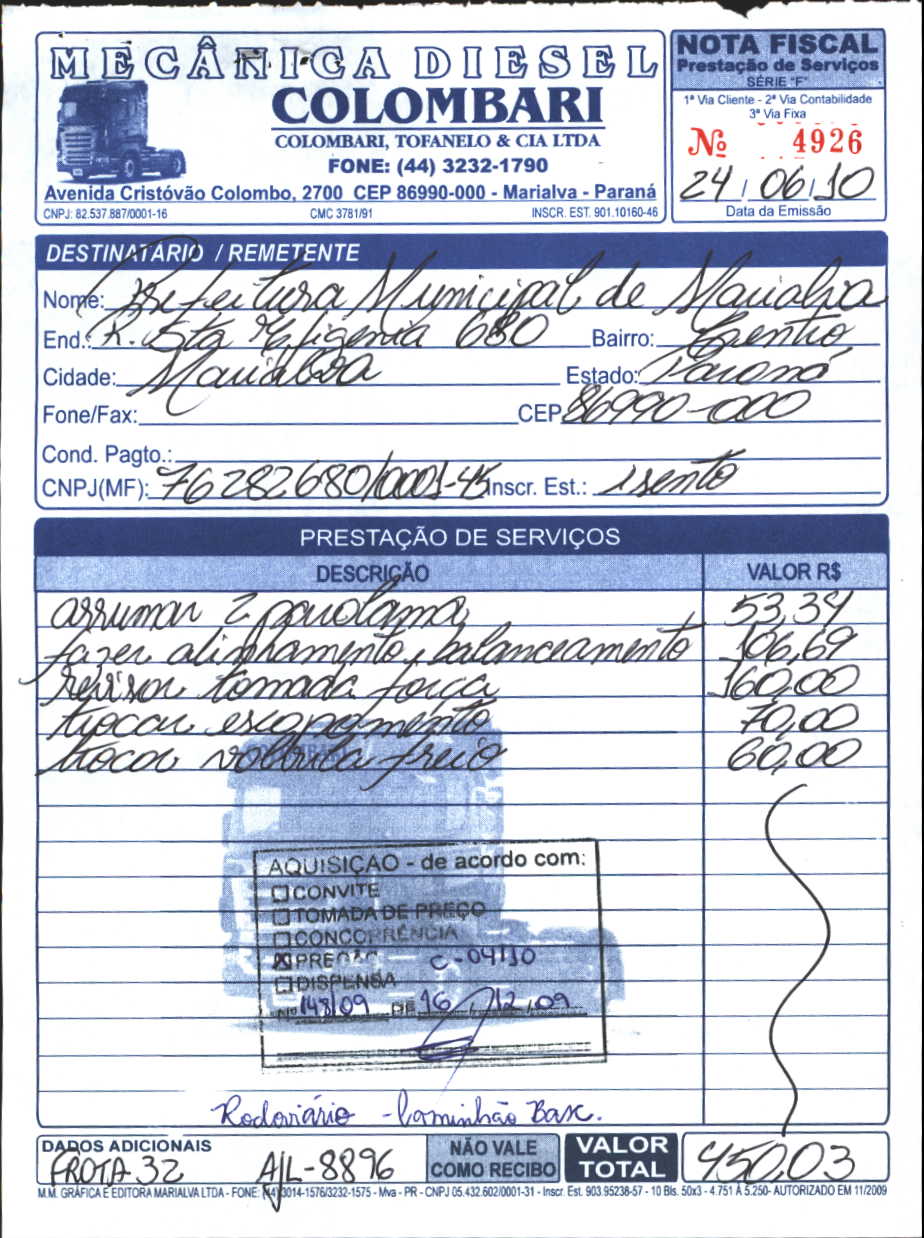 MECÂNICA DIESEL
COLOMBARI
COLOMBARI, TOFANELO & CIA LTDA
FONE: (44) 3232-1790
Avenida Cristóvão Colombo, 2700 CEP 86990-000 - Marialva - Paraná
CNPJ: 82.537.887/0001-16 CMC 3781/91 INSCR. EST. 901.10160-46
NOTA FISCAL
Prestação de Serviços
SÉRIE "F"
1ª Via Cliente - 2ª Via Contabilidade
3ª Via Fixa
Nº 4926
24/06/10
Data da Emissão
DESTINATÁRIO / REMETENTE
Nome: Prefeitura Municipal de Marialva
End.: R. Sta Efigenia 680 Bairro: Centro
Cidade: Marialva Estado: Paraná
Fone/Fax: CEP 86990-000
Cond. Pagto.:
CNPJ(MF): 76282680/0001-45 Inscr. Est.: isento
PRESTAÇÃO DE SERVIÇOS
DESCRIÇÃO VALOR R$
arrumar 2 paralama 53,34
fazer alinhamento, balanceamento 106,69
revisar tomada força 160,00
trocar escapamento 70,00
trocar valvula freio 60,00
AQUISIÇÃO - de acordo com:
CONVITE
TOMADA DE PREÇO
CONCORRÊNCIA
X PREGÃO C-04/10
DISPENSA
Nº 148/09 DE 16/12/09
Rodoviário - Caminhão Basc.
DADOS ADICIONAIS
FROTA 32 AJL-8896
NÃO VALE
COMO RECIBO
VALOR
TOTAL
450,03
M.M. GRÁFICA E EDITORA MARIALVA LTDA - FONE: (44) 3014-1576/3232-1575 - Mva - PR - CNPJ 05.432.602/0001-31 - Inscr. Est. 903.95238-57 - 10 Bls. 50x3 - 4.751 À 5.250- AUTORIZADO EM 11/2009